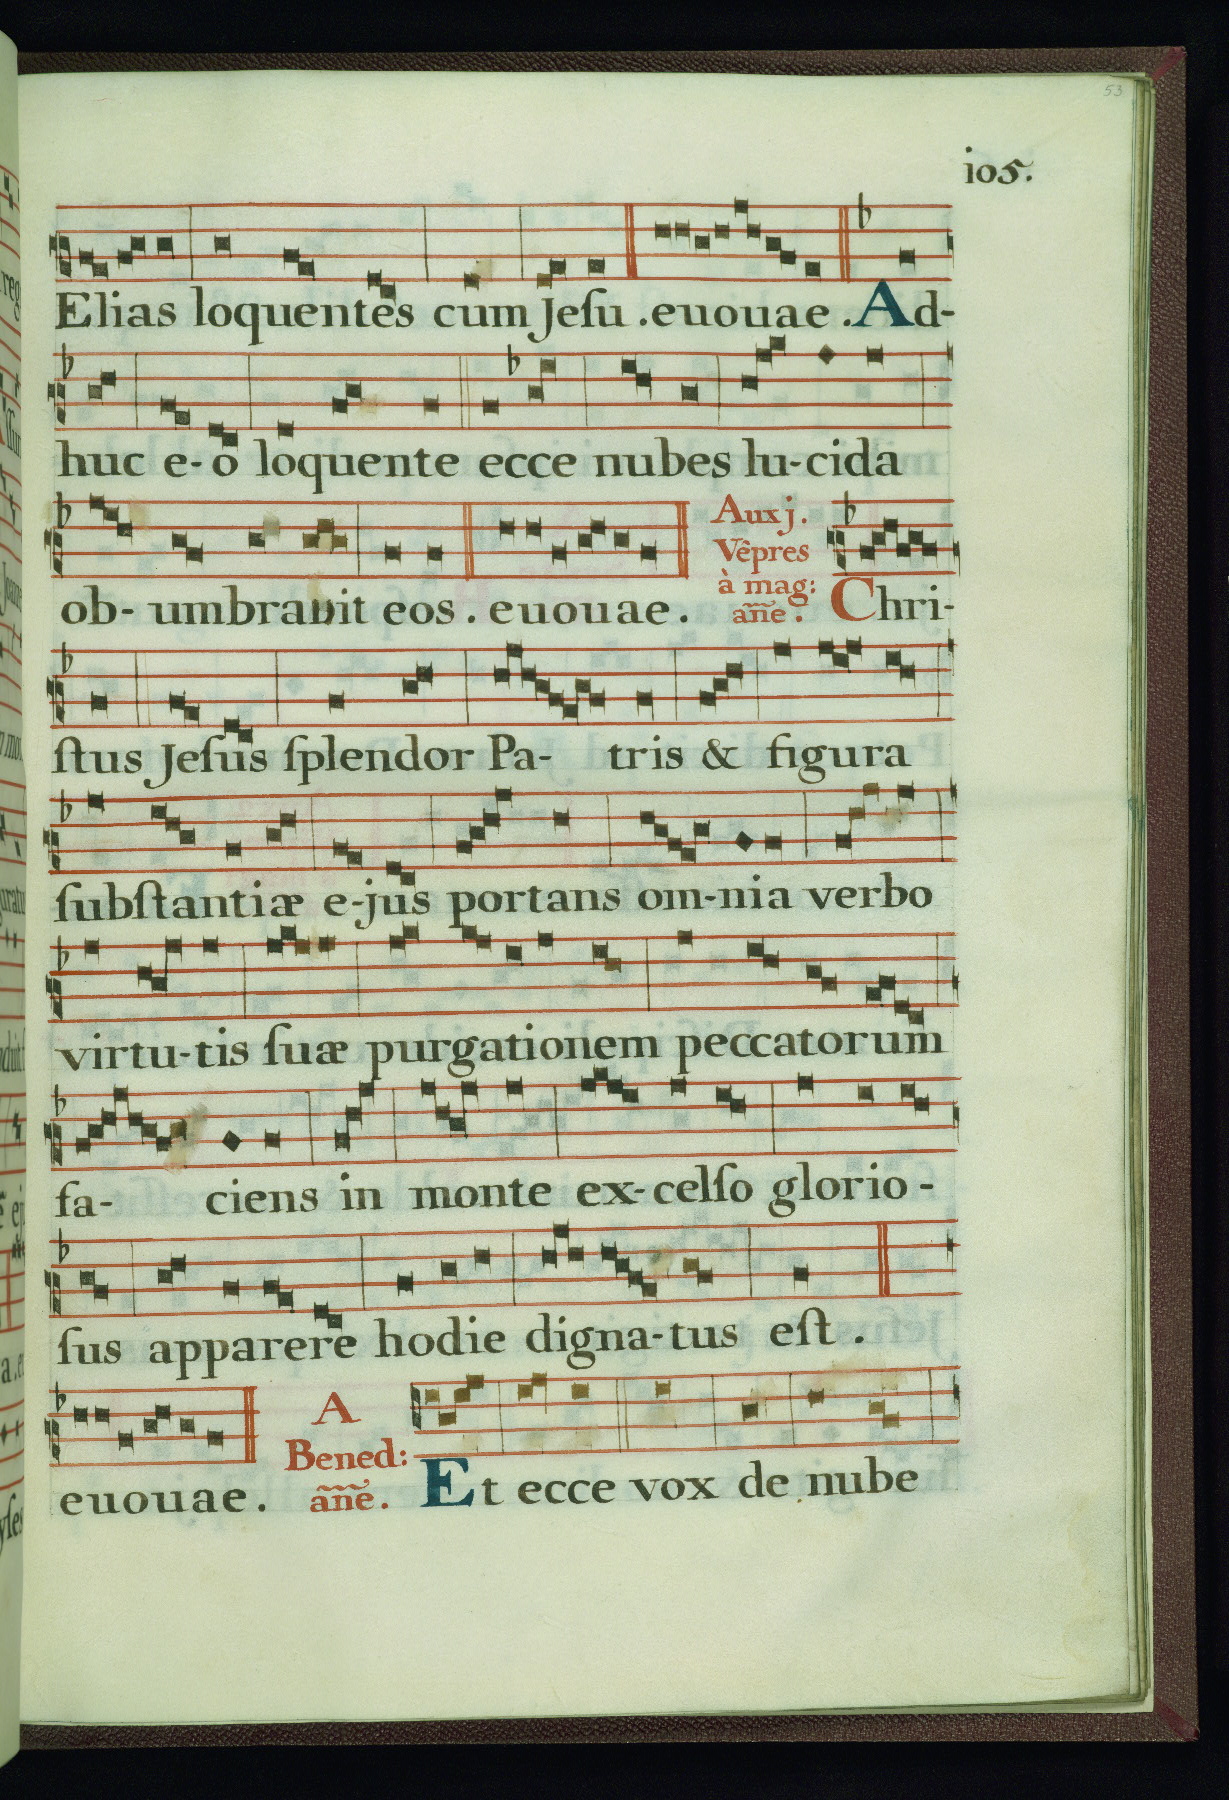 53
105.
Elias loquentes cum Jeſu . euouae . Ad-
huc e-o loquente ecce nubes lu-cida
ob- umbravit eos . euouae .
Aux j.
Vêpres
à mag:
añe .
Chri-
ſtus Jeſus ſplendor Pa- tris & figura
ſubſtantiæ e-jus portans om-nia verbo
virtu-tis ſuæ purgationem peccatorum
fa- ciens in monte ex-celſo glorio-
ſus apparere hodie digna-tus eſt .
euouae .
A
Bened:
añe .
Et ecce vox de nube